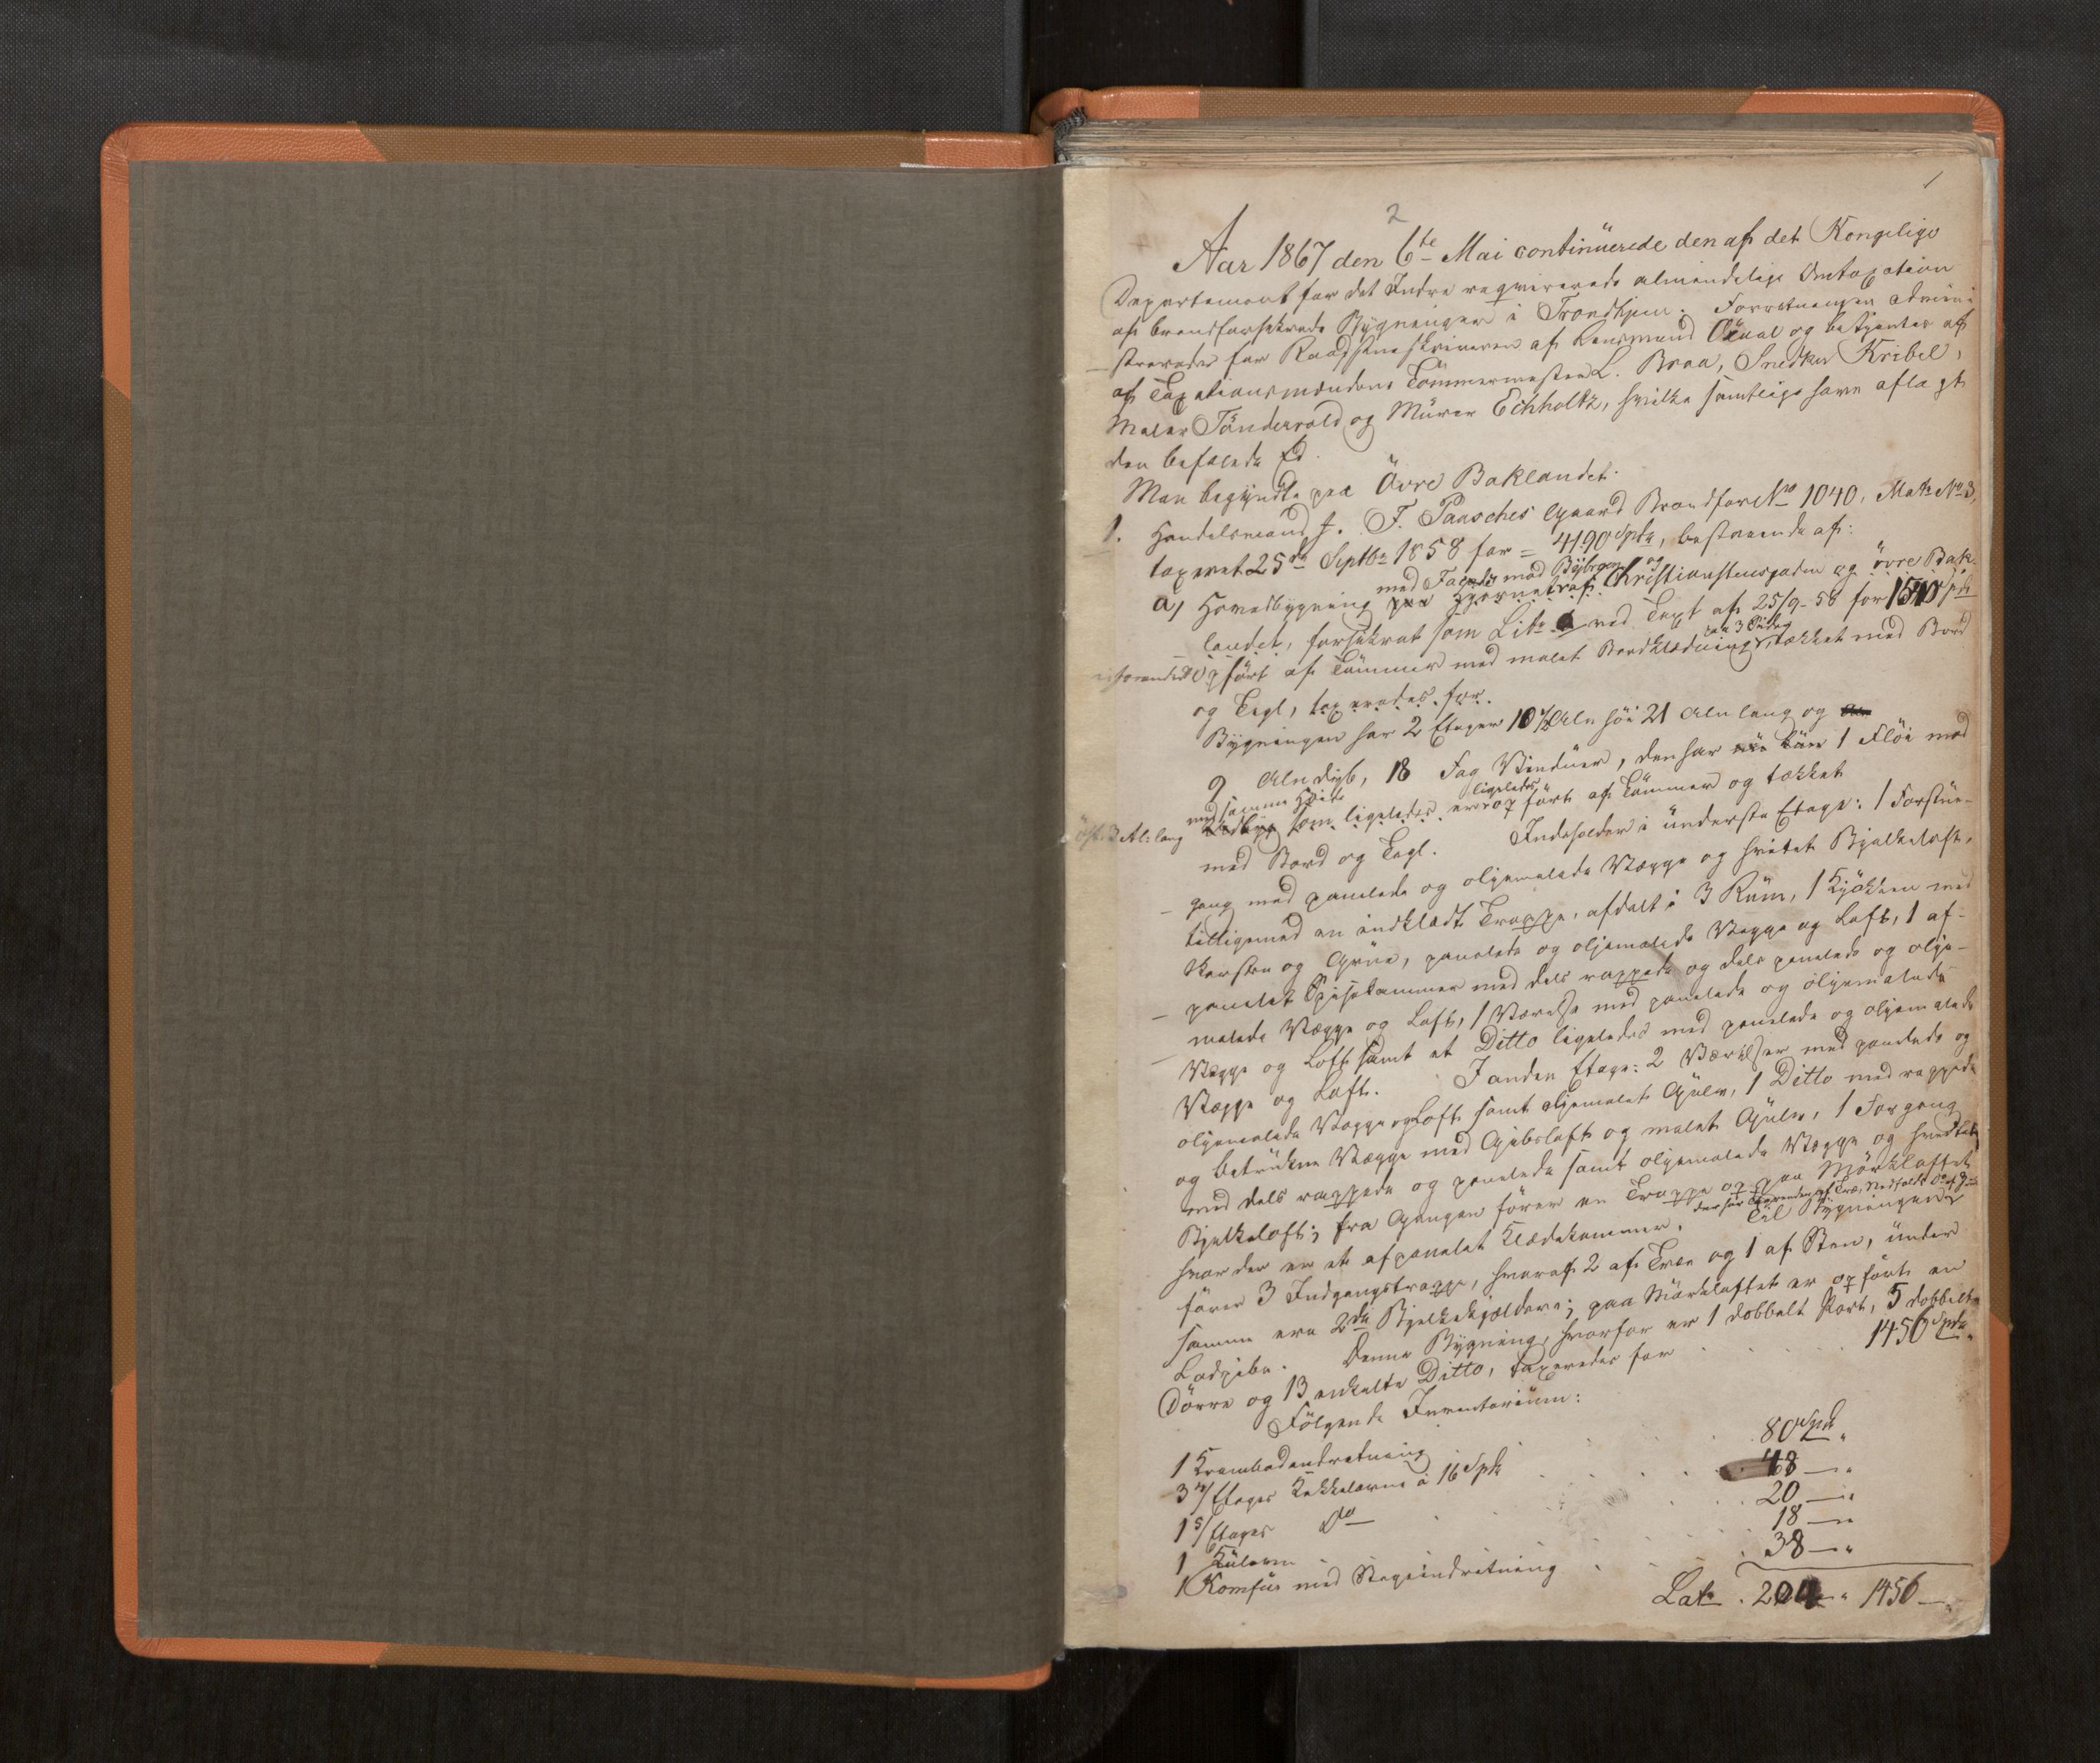 1
2
Aar 1867 den 6te Mai continuerede den af det Kongelige
Departement for det Indre reqvirerede almindelige Omtaxation
af brandforsikrede Bygninger i Trondhjem. Forretningen admini-
streredes for Raadstueskriveren af Lensmand and betjentes af
af Taxationsmændene Tømmermester L. Braa, Snedker Kribel,
Maler Tøndervold og Murer Echholtz, hvilke samtlige have aflagt
den befalede Ed.
Man begyndte paa Övre Baklandet.
1. Handelsmand J. F. Paasches Gaard Brandfor No 1040, Mat: No 3,
taxeret 25de Septbr 1858 for = 4190 Spdr, bestaaende af:
med Facade mod Bybroen og
a, Hovedbygning paa Hjørnet af Christianstensgaden og övre Bak-
landet, forsikret som Litr a ved Taxt af 25/9-58 for 1510 Spdr
paa 3 Sider
opført af Tømmer med malet Bordklædning, tækket med Bord
og Tegl, taxeredes for.
Bygningen har 2 Etager 10½ Aln höi 21 Aln lang og
9 Aln dyb, 18 Fag Vinduer, den har 1 Flöi mod
med samme Höide ligeledes
Öst. 3 Al: lang som ligeledes er opført af Tømmer og tækket
med Bord og Tegl. Indeholder i underste Etage: 1 Forstue-
gang med panelede og oljemalede Vægge og hvitet Bjelkeloft,
tilligemed en indklædt Trappe, afdelt i 3 Rum, 1 Kjökken med
Skorsten og Grue, panelede og oljemalede Vægge og Loft, 1 af-
panelet Spisekammer med dels rappede og dels panelede og olje-
malede Vægge og Loft, 1 Værelse med panelede og oljemalede
Vægge og Loft samt et Ditto ligeledes med panelede og oljemalede
Vægge og Loft. I anden Etage: 2 Værelser med panelede og
oljemalede Vægge og Loft samt oljemalet Gulv, 1 Ditto med rappede
og betrukne Vægge med Gibsloft og malet Gulv, 1 Forgang
med dels rappede og panelede samt oljemalede Vægge og hvidtet
Bjelkeloft; fra Gangen förer en Trappe op paa Mörkloftet
hvor der er et afpanelet Klædekammer. Til Bygningen
förer 3 Indgangstrapper, hvoraf 2 af Træ og 1 af Sten, under
samme ere 2de Bjelkekjeldere; paa Mörkloftet er opfört en
Ladpibe. Denne Bygning, hvorfor er 1 dobbelt Port, 5 dobbelte
Dörre og 13 enkelte Ditto, taxeredes for . . . . . 1456 Spdr "
Fölgende Inventarium:
1 Krambodindretning . . . . 80 Spdr "
3 4/Etages Kakkelovne à 16 Spdr . . . . 48 — "
1 5/Etages Do . . . . 20 — "
1 Kulovn . . . . 18 — "
1 Komfur med Stegeindretning . . . . 38 — "
Lat: . 204 — " 1456 — "